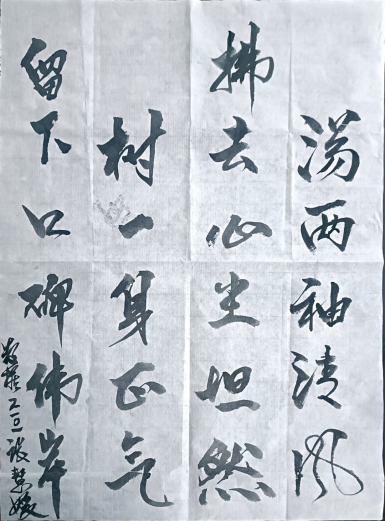 荡两袖清风
拂去心尘坦然
树一身正气
留下口碑伟岸